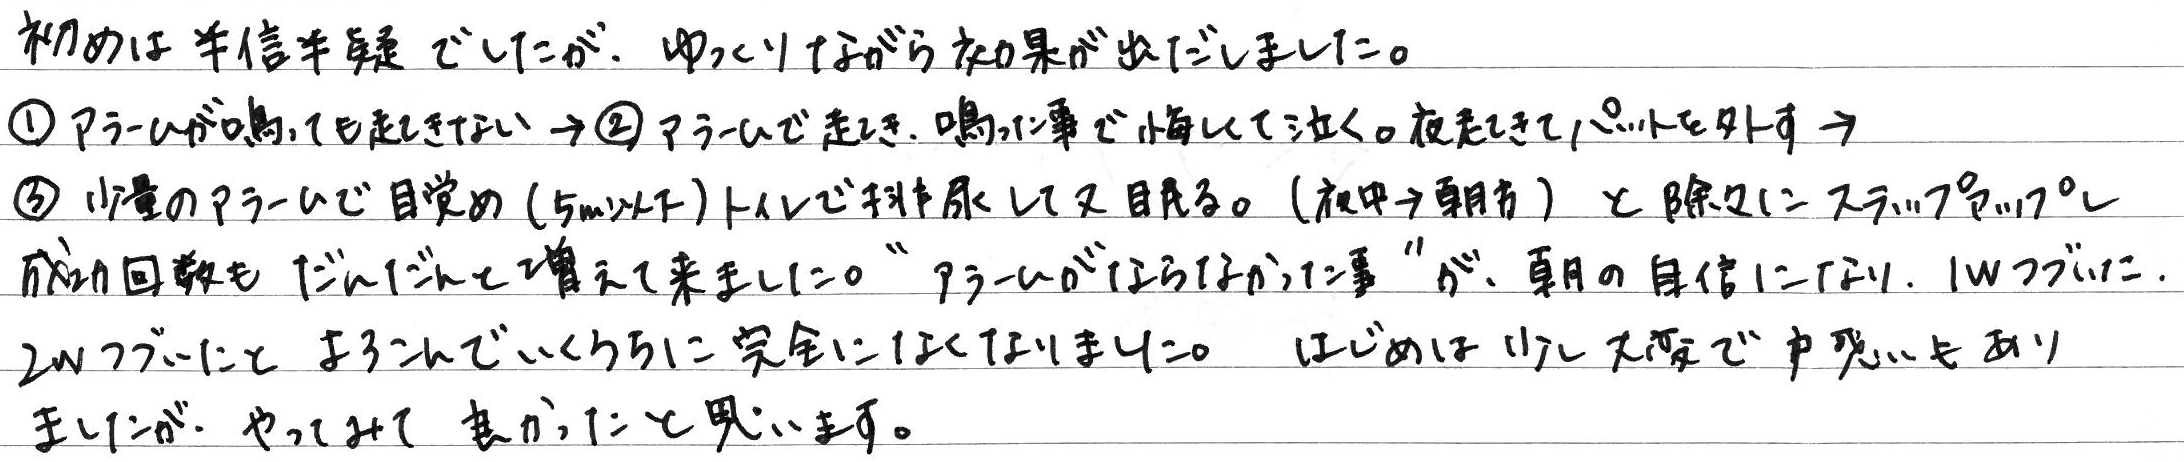 初めは半信半疑でしたが、ゆっくりながら効果が出だしました。
①アラームが鳴っても起きない→②アラームで起き、鳴った事で悔しくて泣く。夜起きてパットを外す→
③少量のアラームで目覚め(5ml以下)トイレで排尿して又眠る。(夜中→朝方)と除々にステップアップし
成功回数もだんだんと増えて来ました。"アラームがならなかった事"が、朝の自信になり、1Wつづいた、
2Wつづいたとよろこんでいくうちに完全になくなりました。 はじめは少し大変で戸惑いもあり
ましたが、やってみて良かったと思います。